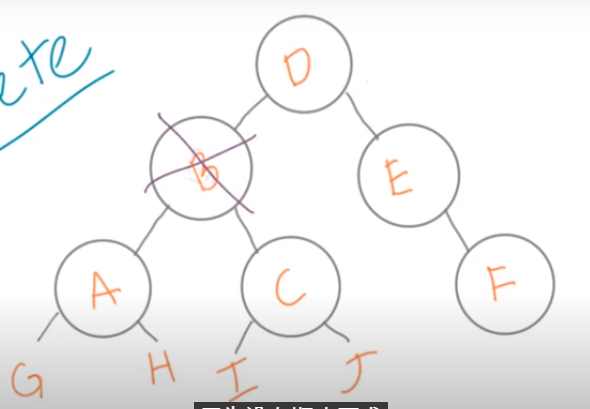 ete
D
B
E
A
C
F
G
H
I
J